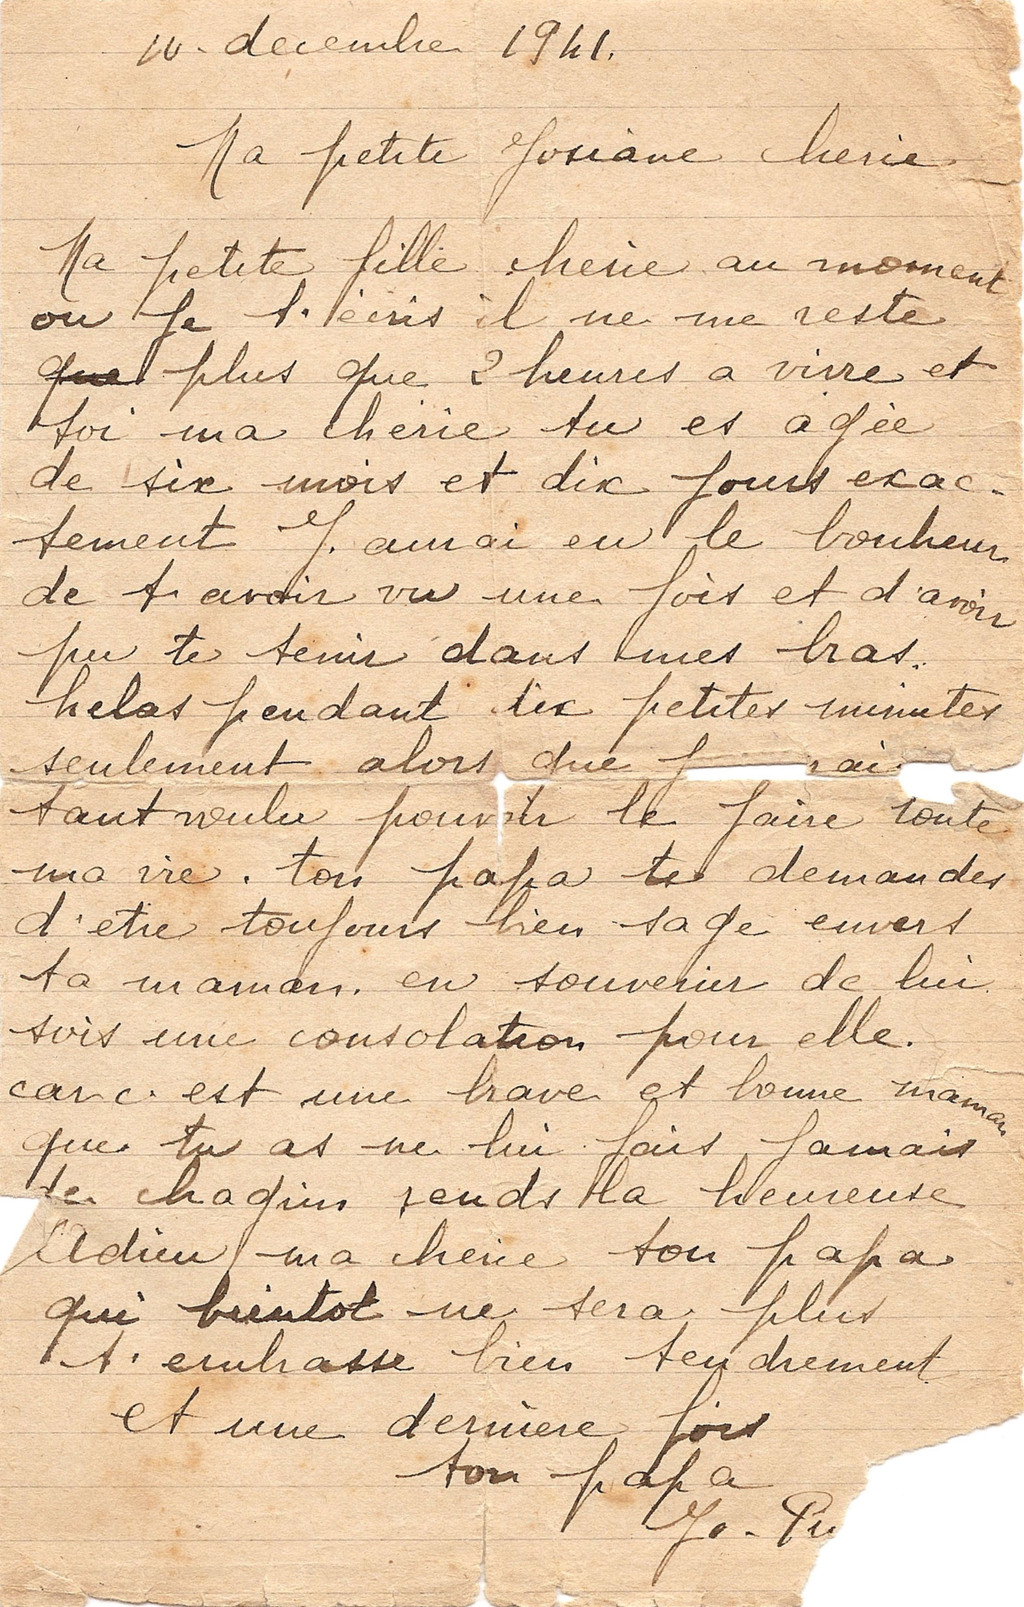 10. decembre 1941.
Ma petite Josiane cherie
Ma petite fille cherie au moment
ou Je t'ecris il ne me reste
que plus que 2 heures a vivre et
toi ma cherie tu es agée
de six mois et dix jours exac-
tement J. aurai eu le bonheur
de t'avoir vu une fois et d'avoir
pu te tenir dans mes bras.
helas pendant dix petites minutes
seulement alors que
tant voulu pouvoir le faire toute
ma vie. ton papa te demandes
d'etre toujours bien sage envers
ta maman. en souvenir de lui
sois une consolation pour elle.
car c'est une brave et bonne maman
que tu as ne lui fais jamais
de chagrin rends la heureuse
Adieu ma cherie ton papa
qui bientot ne sera plus
t'embrasse bien tendrement
et une derniere fois
ton papa